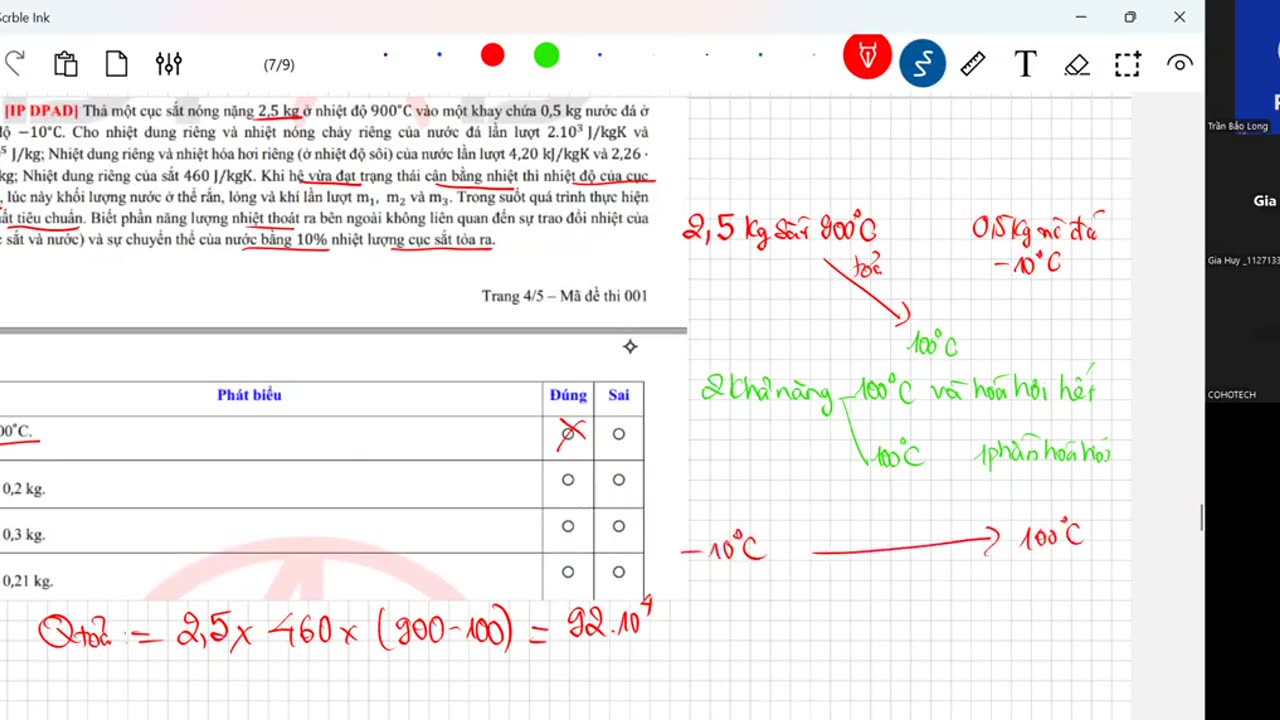 Scrble Ink
(7/9)
T
[IP DPAD] Thả một cục sắt nóng nặng 2,5 kg ở nhiệt độ 900°C vào một khay chứa 0,5 kg nước đá ở
độ −10°C. Cho nhiệt dung riêng và nhiệt nóng chảy riêng của nước đá lần lượt 2.10³ J/kgK và
⁵ J/kg; Nhiệt dung riêng và nhiệt hóa hơi riêng (ở nhiệt độ sôi) của nước lần lượt 4,20 kJ/kgK và 2,26 ·
kg; Nhiệt dung riêng của sắt 460 J/kgK. Khi hệ vừa đạt trạng thái cân bằng nhiệt thì nhiệt độ của cục
, lúc này khối lượng nước ở thể rắn, lỏng và khí lần lượt m₁, m₂ và m₃. Trong suốt quá trình thực hiện
ất tiêu chuẩn. Biết phần năng lượng nhiệt thoát ra bên ngoài không liên quan đến sự trao đổi nhiệt của
sắt và nước) và sự chuyển thể của nước bằng 10% nhiệt lượng cục sắt tỏa ra.
Trang 4/5 – Mã đề thi 001
Phát biểu Đúng Sai
00°C.
0,2 kg.
0,3 kg.
0,21 kg.
Qtoả := 2,5 x 460 x (900-100) = 92.10⁴
2,5 kg sắt 900°C 0,5 kg nc đá
-10°C
toả
100°C
2 khả năng 100°C và hoá hơi hết
100°C 1 phần hoá hơi
-10°C 100°C
Trần Bảo Long
Gia
Gia Huy _1127133
COHOTECH